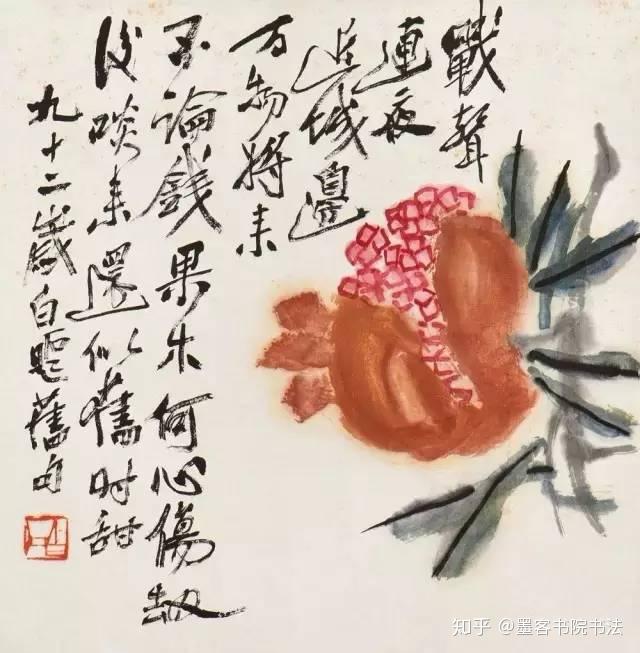 戰聲
連夜
近城邊
万物將来
不論錢果木何心傷劫
後啖来還似舊時甜
九十二歲白石舊句
白石
知乎 @墨客书院书法